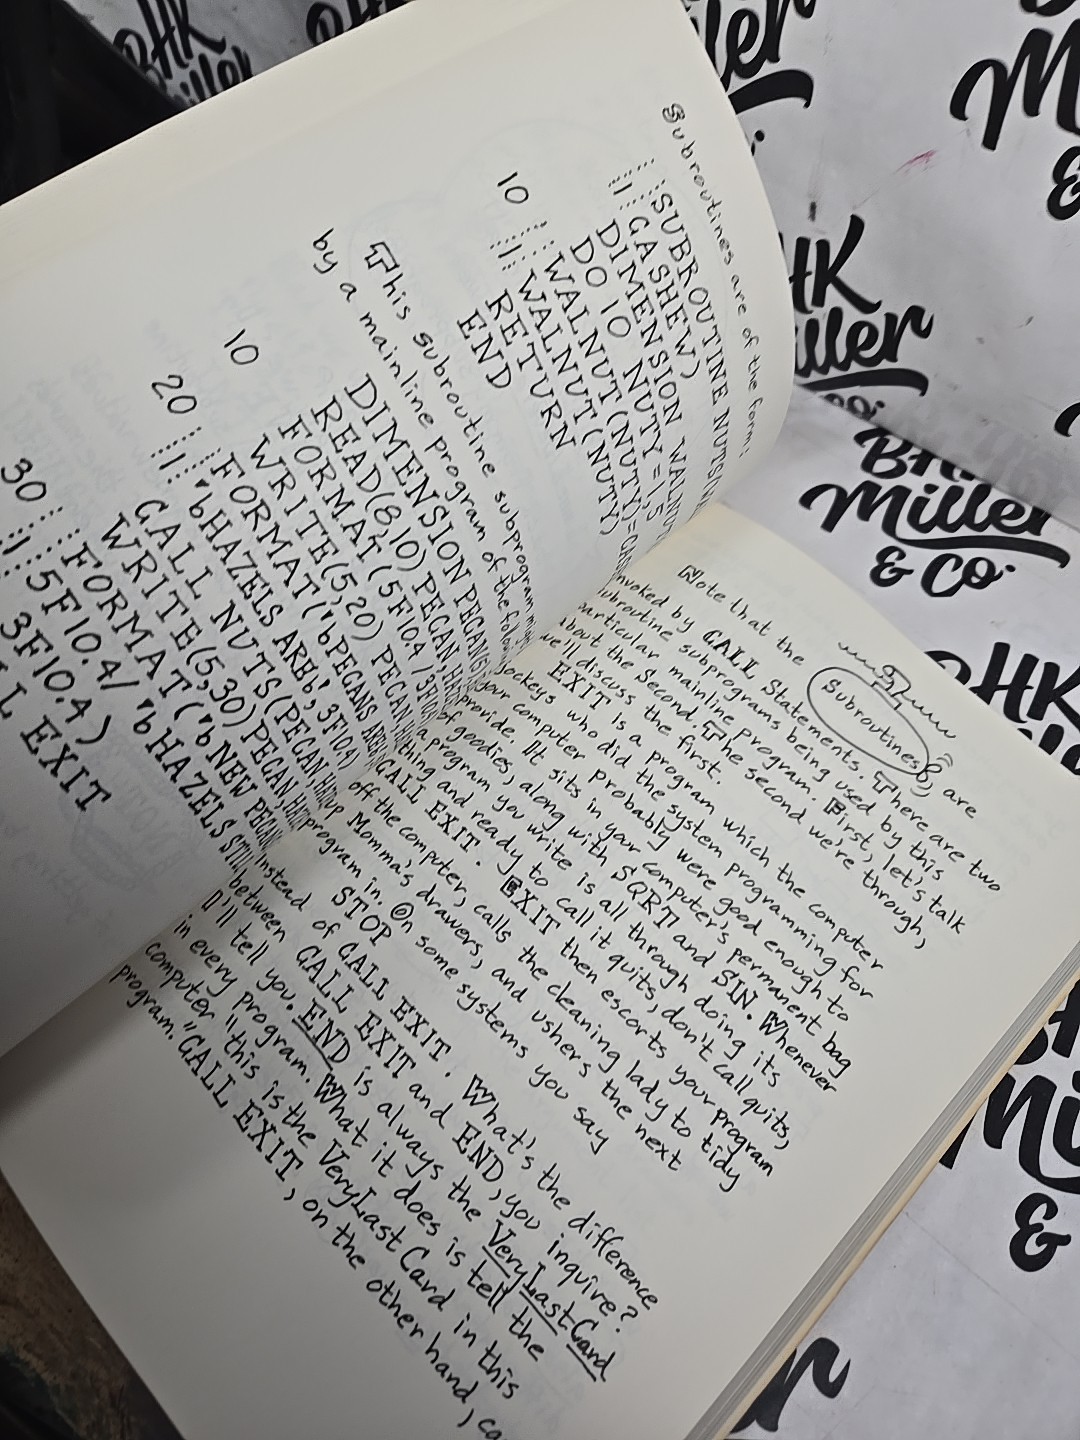 Subroutines are of the form:
SUBROUTINE NUTS(
1 CASHEW)
DIMENSION WALNUT
DO 10 NUTY=1,5
10 WALNUT(NUTY)=CA
1 WALNUT(NUTY)
RETURN
END
This subroutine subprogram
by a mainline program of the
DIMENSION PECAN(5)
READ(8,10) PECAN,HA
10 FORMAT(5F10.4/3F10
WRITE(5,20) PECAN
20 FORMAT('bPECANS AREb
1 'bHAZELS AREb',3F10.4)
CALL NUTS(PECAN,HAZ
WRITE(5,30) PECAN,HAZ
30 FORMAT('bNEW PECAN
1 5F10.4/'bHAZELS STIL
3F10.4)
L EXIT
Subroutines
Note that the
invoked by CALL Statements. There are two
subroutine subprograms being used by this
particular mainline program. First, let's talk
about the second. The second we're through,
we'll discuss the first.
EXIT is a program which the computer
jockeys who did the system programming for
your computer probably were good enough to
provide. It sits in your computer's permanent bag
of goodies, along with SQRT and SIN. Whenever
a program you write is all through doing its
thing and ready to call it quits, don't call quits,
CALL EXIT. EXIT then escorts your program
off the computer, calls the cleaning lady to tidy
up Momma's drawers, and ushers the next
program in. On some systems you say
STOP
instead of CALL EXIT. What's the difference
between CALL EXIT and END, you inquire?
I'll tell you. END is always the Very Last Card
in every program. What it does is tell the
computer "this is the Very Last Card in this
program." CALL EXIT, on the other hand,
BHK
Miller
& Co.
BHK
Miller
& Co.
BHK
Miller